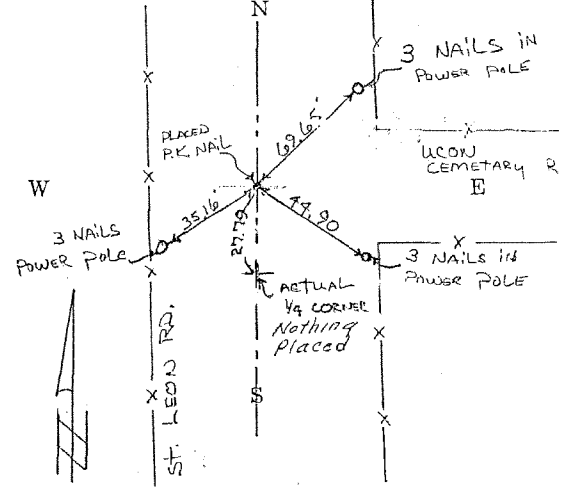 N
3 NAILS IN
POWER POLE
69.65'
PLACED
P.K. NAIL
UCON
CEMETARY R
W
E
35.16
44.90
3 NAILS
POWER POLE
27.79
3 NAILS IN
POWER POLE
ACTUAL
1/4 CORNER
Nothing
Placed
ST. LEON RD.
S